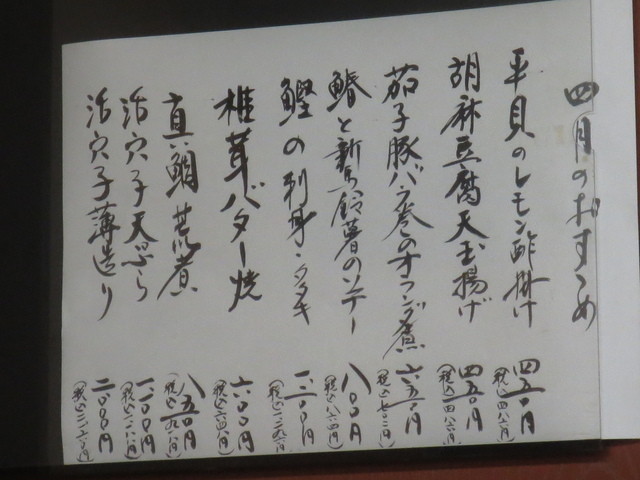 四月のおすゝめ
平貝のレモン酢掛け 四五〇円
(税込四八六円)
胡麻豆腐天玉揚げ 四五〇円
(税込四八六円)
茄子豚バラ巻のオランダ煮 六五〇円
(税込七〇二円)
鰆と新馬鈴薯のソテー 八〇〇円
(税込八六四円)
鰹の刺身・タタキ 一、二〇〇円
(税込一、二九六円)
椎茸バター焼 六〇〇円
(税込六四八円)
真鯛荒煮 八五〇円
(税込九一八円)
活穴子天ぷら 一、一〇〇円
(税込一、一八八円)
活穴子薄造り 二、〇〇〇円
(税込二、一六〇円)